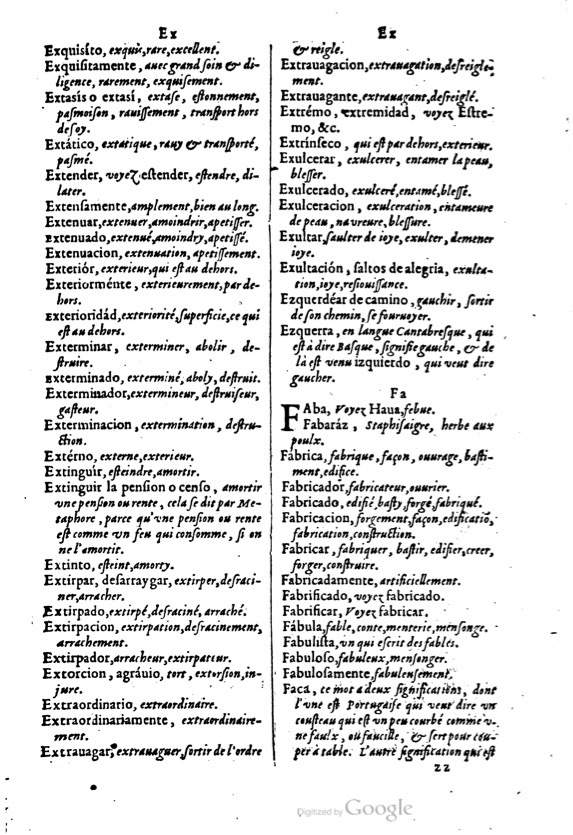 Ex
Exquisíto, exquis, rare, excellent.
Exquisitamente, auec grand soin & di-
ligence, rarement, exquisement.
Extasis o extasi, extase, estonnement,
pasmoison, rauissement, transport hors
de soy.
Extático, extatique, rauy & transporté,
pasmé.
Extender, voyez estender, estendre, di-
later.
Extensamente, amplement, bien au long.
Extenuar, extenuer, amoindrir, apetisser.
Extenuado, extenué, amoindry, apetissé.
Extenuacion, extenuation, apetissement.
Exteriór, exterieur, qui est au dehors.
Exteriorménte, exterieurement, par de-
hors.
Exterioridád, exteriorité, superficie, ce qui
est au dehors.
Exterminar, exterminer, abolir, de-
struire.
Exterminado, exterminé, aboly, destruit.
Exterminador, extermineur, destruiseur,
gasteur.
Exterminacion, extermination, destru-
ction.
Extérno, externe, exterieur.
Extinguir, esteindre, amortir.
Extinguir la pension o censo, amortir
vne pension ou rente, cela se dit par Me-
taphore, parce qu'vne pension ou rente
est comme vn feu qui consomme, si on
ne l'amortit.
Extinto, esteint, amorty.
Extirpar, desarraygar, extirper, desraci-
ner, arracher.
Extirpado, extirpé, desraciné, arraché.
Extirpacion, extirpation, desracinement,
arrachement.
Extirpador, arracheur, extirpateur.
Extorcion, agráuio, tort, extorsion, in-
jure.
Extraordinario, extraordinaire.
Extraordinariamente, extraordinaire-
ment.
Extrauagar, extrauaguer, sortir de l'ordre
Ex
& reigle.
Extrauagacion, extrauagation, desreigle-
ment.
Extrauagante, extrauagant, desreiglé.
Extrémo, extremidad, voyez Estre-
mo, &c.
Extrínseco, qui est par dehors, exterieur.
Exulcerar, exulcerer, entamer la peau,
blesser.
Exulcerado, exulceré, entamé, blessé.
Exulceracion, exulceration, entameure
de peau, navreure, blessure.
Exultar, saulter de ioye, exulter, demener
ioye.
Exultación, saltos de alegria, exulta-
tion, ioye, resiouissance.
Ezquerdéar de camino, gauchir, sortir
de son chemin, se fouruoyer.
Ezquerra, en langue Cantabresque, qui
est à dire Basque, signifie gauche, & de
là est venu izquierdo, qui veut dire
gaucher.
Fa
FAba, Voyez Haua, febue.
Fabaráz, Staphisaigre, herbe aux
poulx.
Fábrica, fabrique, façon, ouurage, basti-
ment, edifice.
Fabricador, fabricateur, ouurier.
Fabricado, edifié, basty, forgé, fabriqué.
Fabricacion, forgement, façon, edificatiō,
fabrication, construction.
Fabricar, fabriquer, bastir, edifier, creer,
forger, construire.
Fabricadamente, artificiellement.
Fabrificado, voyez fabricado.
Fabrificar, Voyez fabricar.
Fábula, fable, conte, menterie, mensonge.
Fabulista, vn qui escrit des fables.
Fabuloso, fabuleux, mensonger.
Fabulosamente, fabuleusement.
Faca, ce mot a deux significations, dont
l'vne est Portugaise qui veut dire vn
cousteau qui est vn peu courbé comme v-
ne faulx, ou faucille, & sert pour cou-
per à table. L'autre signification qui est
zz
Digitized by Google